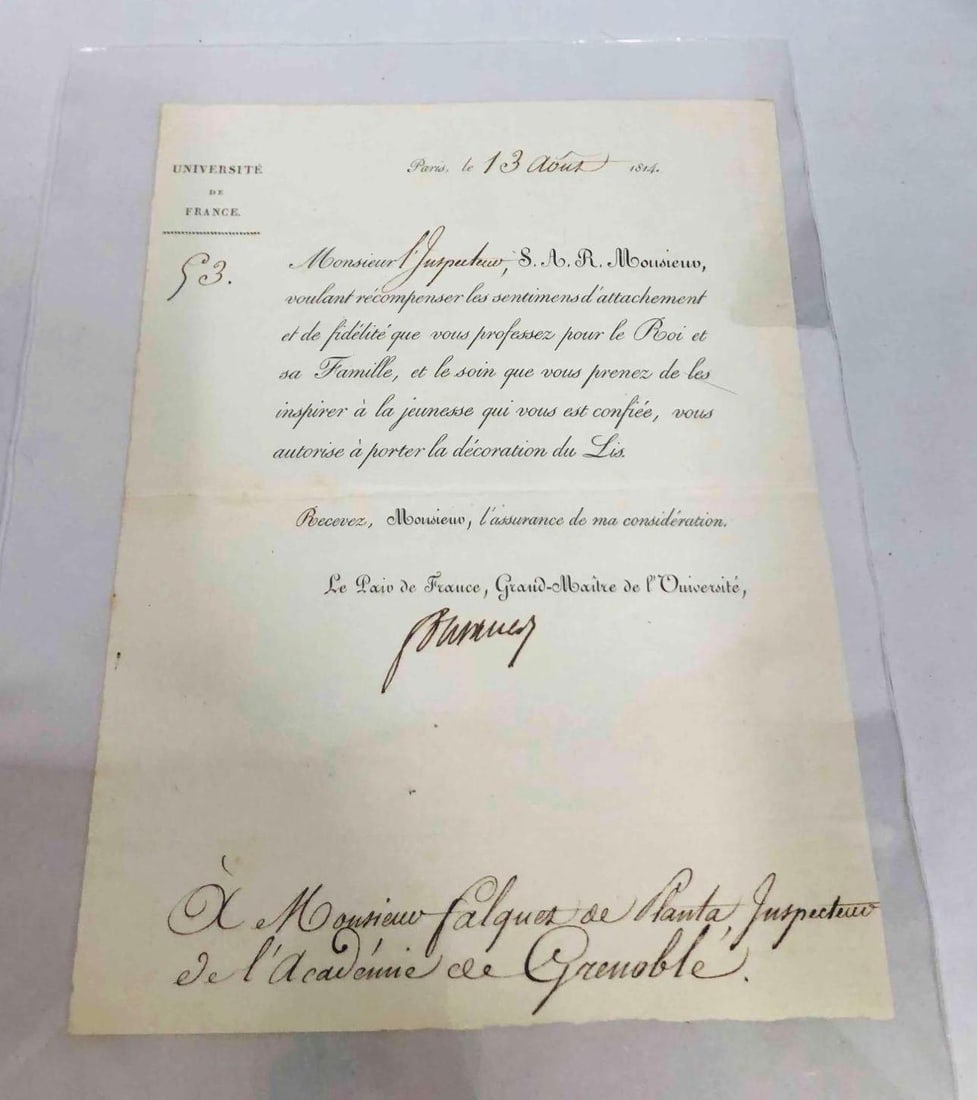 UNIVERSITÉ
DE
FRANCE.
Paris, le 13 Août 1814.
53.
Monsieur l'Inspecteur, S. A. R. Monsieur,
voulant récompenser les sentimens d'attachement
et de fidélité que vous professez pour le Roi et
sa Famille, et le soin que vous prenez de les
inspirer à la jeunesse qui vous est confiée, vous
autorise à porter la décoration du Lis.
Recevez, Monsieur, l'assurance de ma considération.
Le Pair de France, Grand-Maître de l'Université,
À Monsieur falquet de Planta, Inspecteur
de l'Académie de Grenoble.